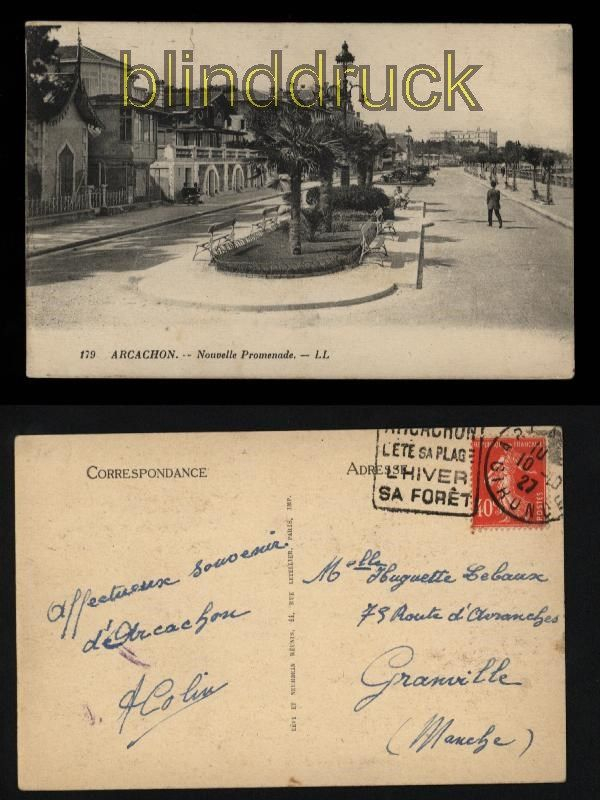 blinddruck
179 ARCACHON. -- Nouvelle Promenade. — LL
CORRESPONDANCE
ADRESSE
ARCACHON
L'ÉTÉ SA PLAGE
L'HIVER
SA FORÊT
RÉPUBLIQUE FRANÇAISE
40c
POSTES
10
27
GIRONDE
Affectueux souvenir.
d'Arcachon
AColin
LÉVY ET NEURDEIN RÉUNIS, 44, RUE LETELLIER, PARIS, IMP.
Melle Huguette Lebaux
79 Route d'Avranches
Granville
(Manche)